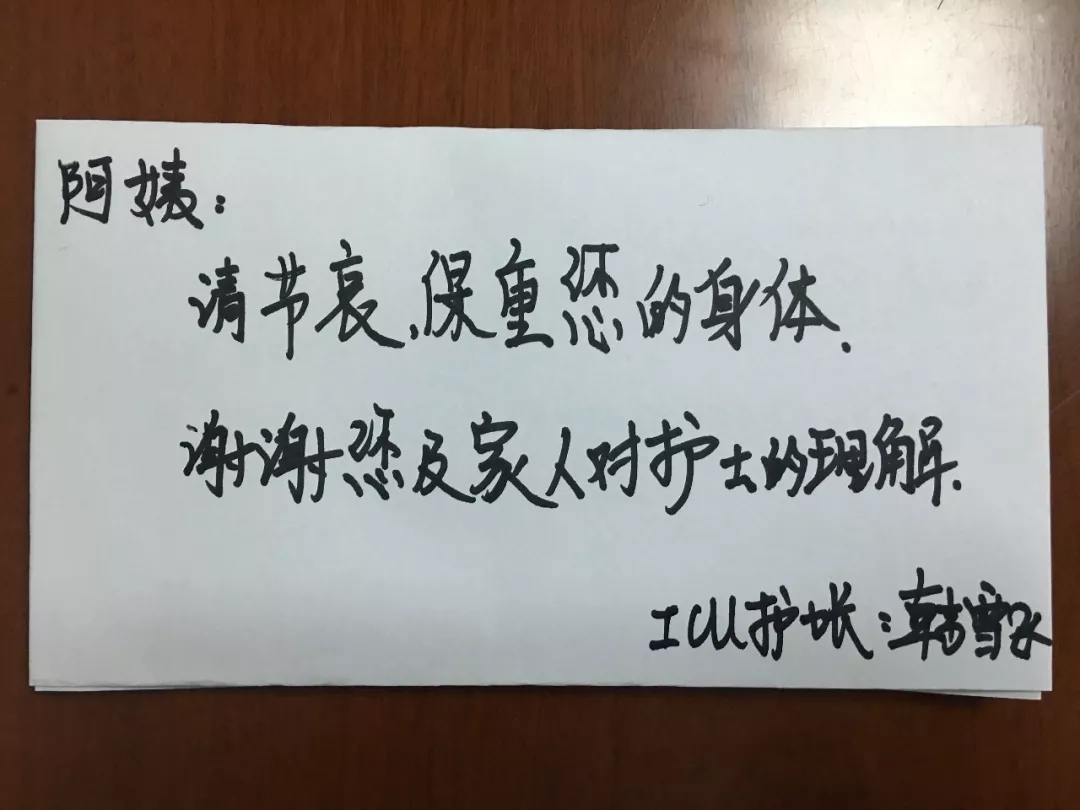 阿姨：
请节哀，保重您的身体．
谢谢您及家人对护士的理解．
ICU护长：韩雪冰